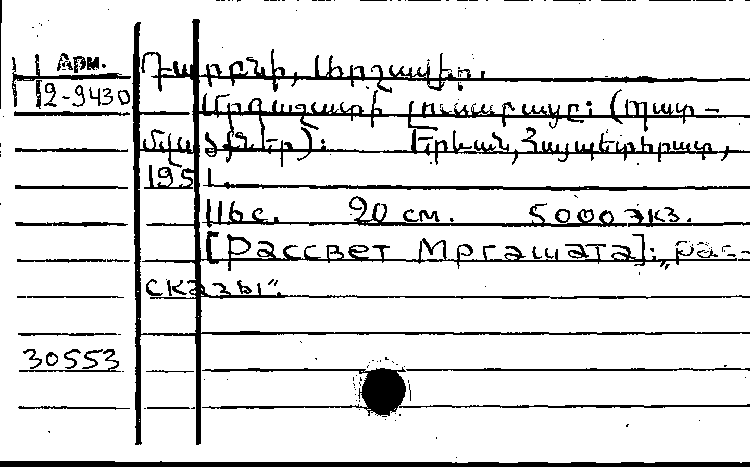 Арм.
2-9430
Դարբնի, Աիրշավիր.
Մրգաշատի լուսաբացը: (Պատ-
մվածքներ): Երևան, Հայպետհրատ,
1951.
116 с. 20 см. 5000 экз.
[Рассвет Мргашата]: „рас-
сказы“.
30553